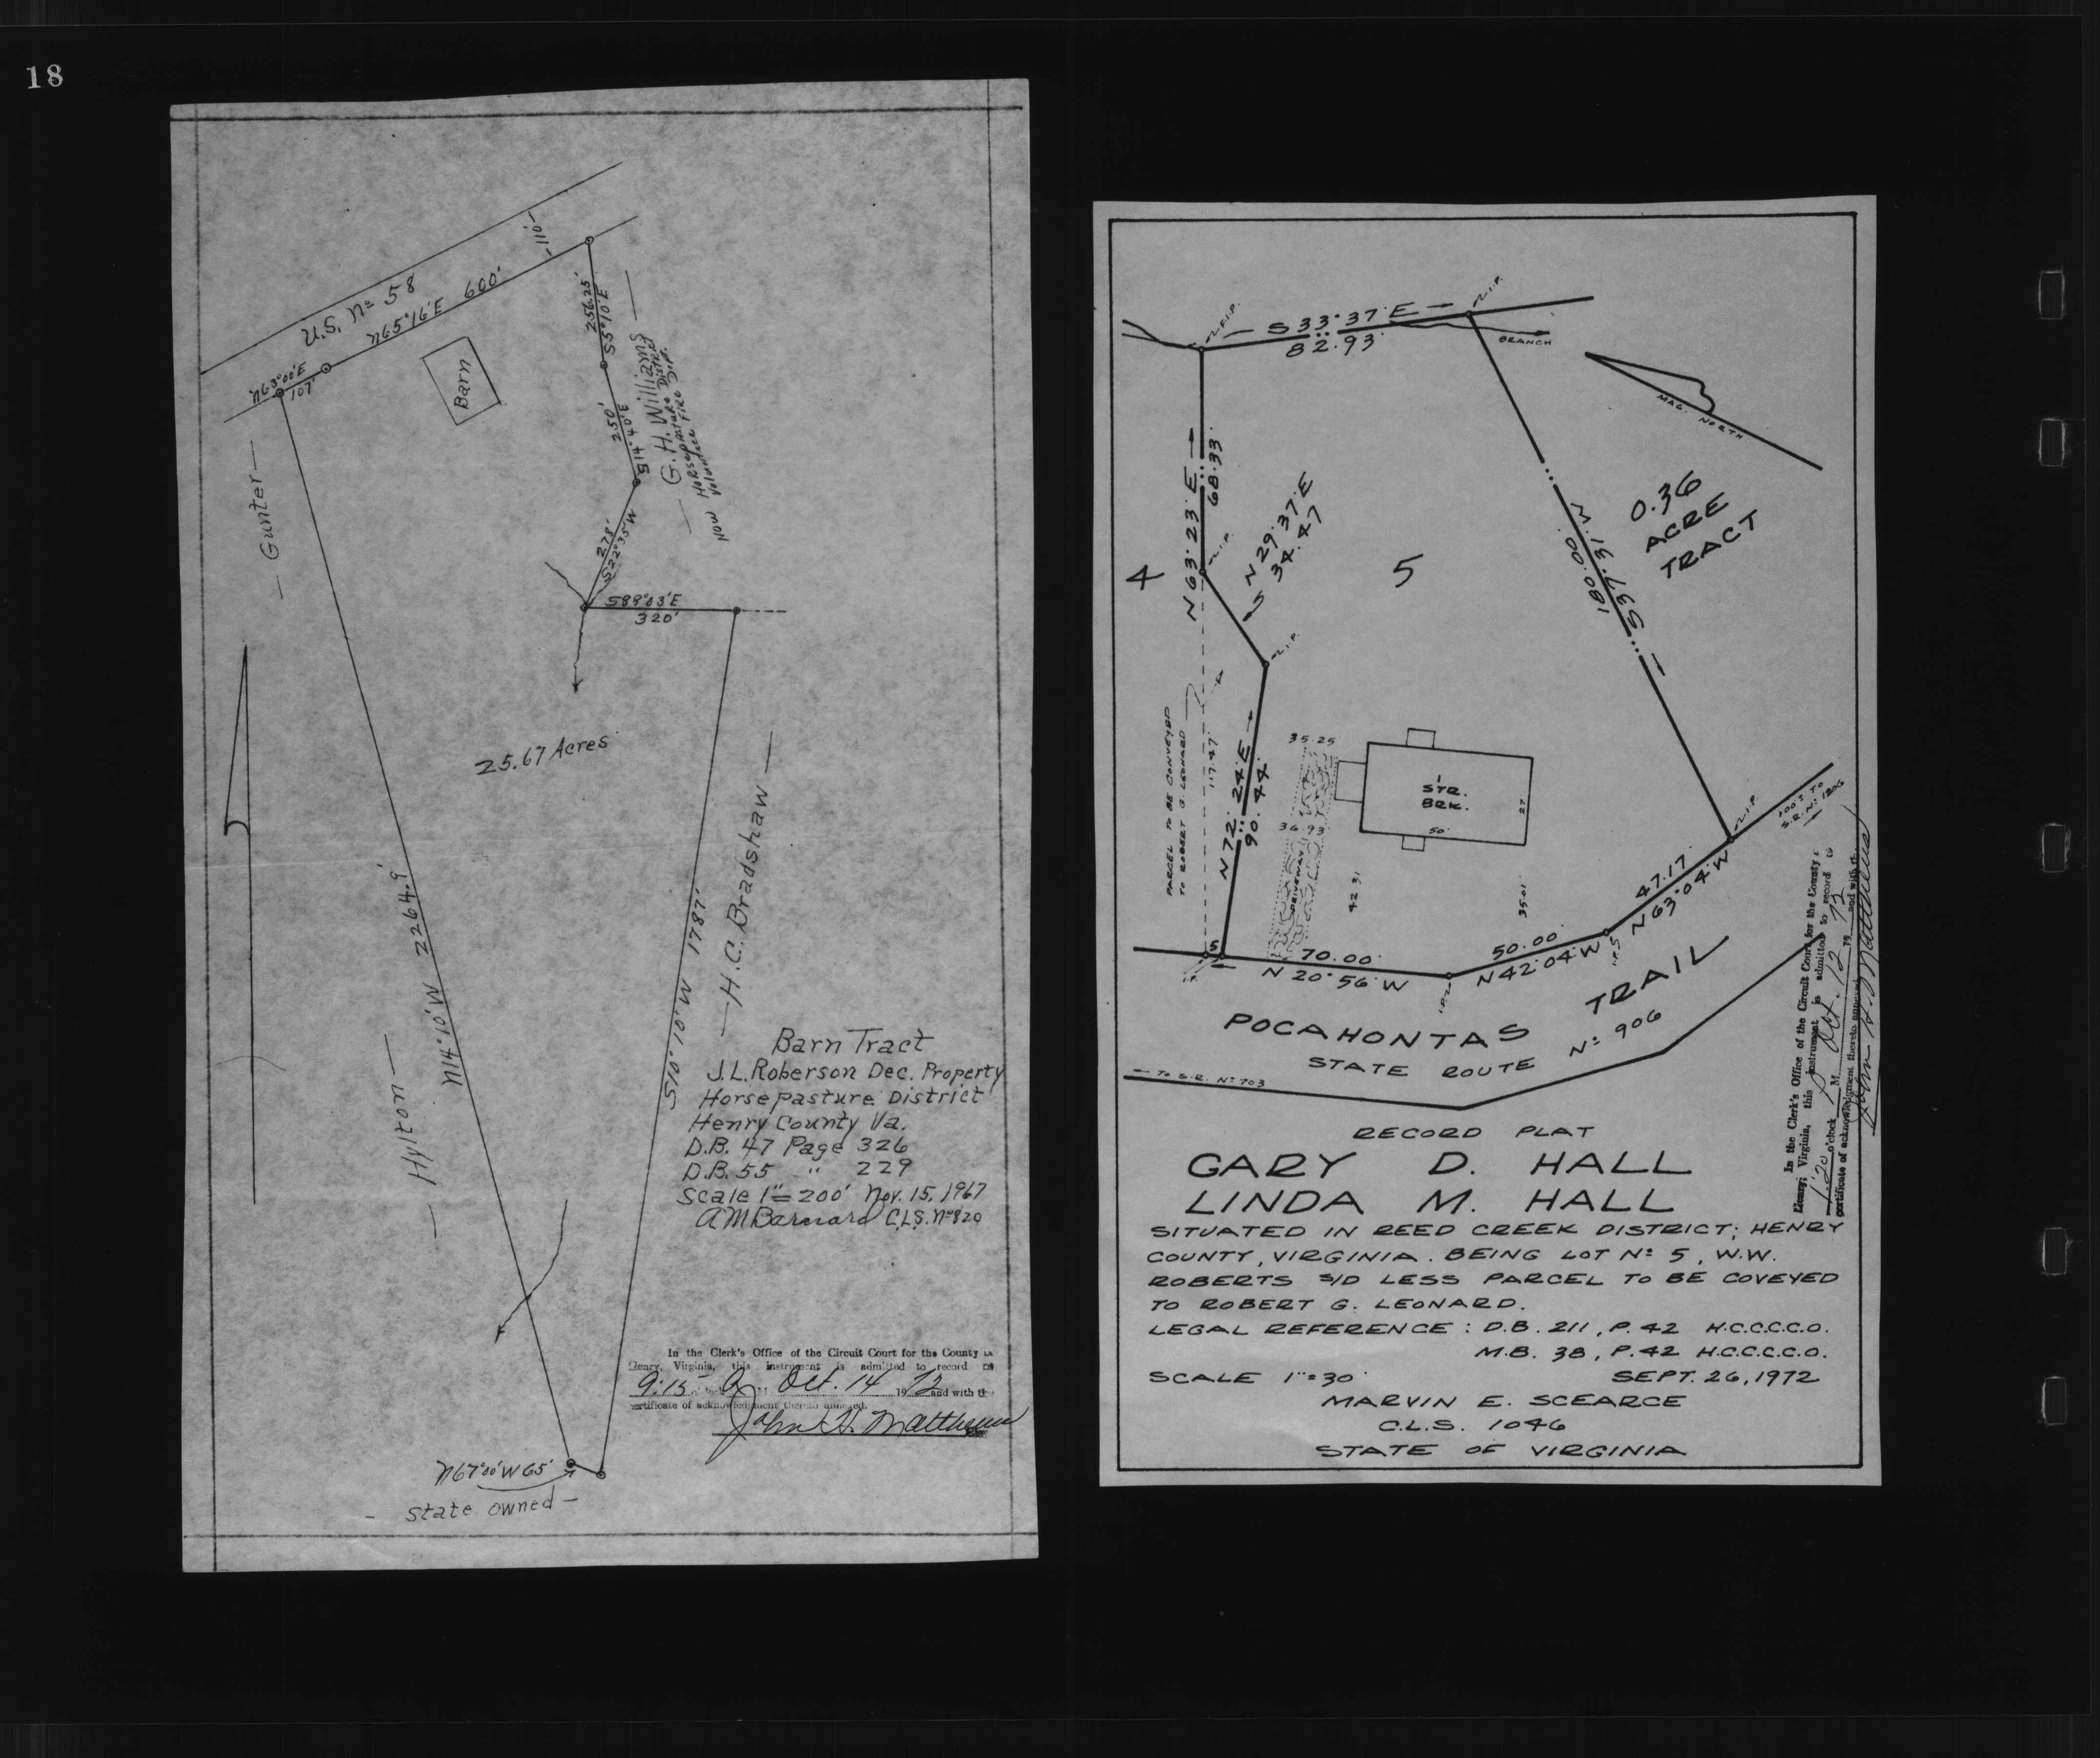 18
U.S. Nº 58
110'
N65°16'E 600'
N63°00'E
107'
Barn
256.25'
S5°10'E
250'
S14°40'E
— G.H. Williams —
Now Horsepasture District
Volunteer Fire Dep.
278'
S22°35'W
S89°03'E
320'
— Gunter —
25.67 Acres
N14°10'W 2264.9'
— Hylton —
S10°10'W 1787'
— H.C. Bradshaw —
Barn Tract
J.L. Roberson Dec. Property
Horsepasture District
Henry County Va.
D.B. 47 Page 326
D.B. 55 " 229
Scale 1"=200' Nov. 15, 1967
A M Barnard C.L.S. Nº 820
In the Clerk's Office of the Circuit Court for the County
Henry, Virginia, this instrument is admitted to record
9:15 A Oct. 14 1972 and with the
certificate of acknowledgment thereto annexed.
John H. Matthews
N67°00'W 65'
— State owned —
S 33° 37' E
82.93'
I.P.
I.P.
BRANCH
MAG. NORTH
N 63° 23' E
68.33'
I.P.
N 29° 37' E
34.47
4
5
0.36
ACRE
TRACT
S 37° 31' W
180.00'
I.P.
PARCEL TO BE CONVEYED
TO ROBERT G. LEONARD
117.47
N 72° 24' E
90.44'
I.P.
35.25
36.93
DRIVEWAY
1
STR.
BRK.
50'
27
42.31
35.01
5
70.00'
N 20° 56' W
50.00'
N 42° 04' W
47.17'
N 63° 04' W
I.P.
100'± TO
S.R. Nº 1206
POCAHONTAS TRAIL
STATE ROUTE Nº 906
← TO S.R. Nº 703
In the Clerk's Office of the Circuit Court for the County
Henry, Virginia, this instrument is admitted to record
1:20 o'clock P M. Oct. 12 1972 and with the
certificate of acknowledgment thereto annexed
John H. Matthews
RECORD PLAT
GARY D. HALL
LINDA M. HALL
SITUATED IN REED CREEK DISTRICT; HENRY
COUNTY, VIRGINIA. BEING LOT Nº 5, W.W.
ROBERTS S/D LESS PARCEL TO BE COVEYED
TO ROBERT G. LEONARD.
LEGAL REFERENCE : D.B. 211, P. 42 H.C.C.C.C.O.
M.B. 38, P. 42 H.C.C.C.C.O.
SCALE 1"=30' SEPT. 26, 1972
MARVIN E. SCEARCE
C.L.S. 1046
STATE OF VIRGINIA